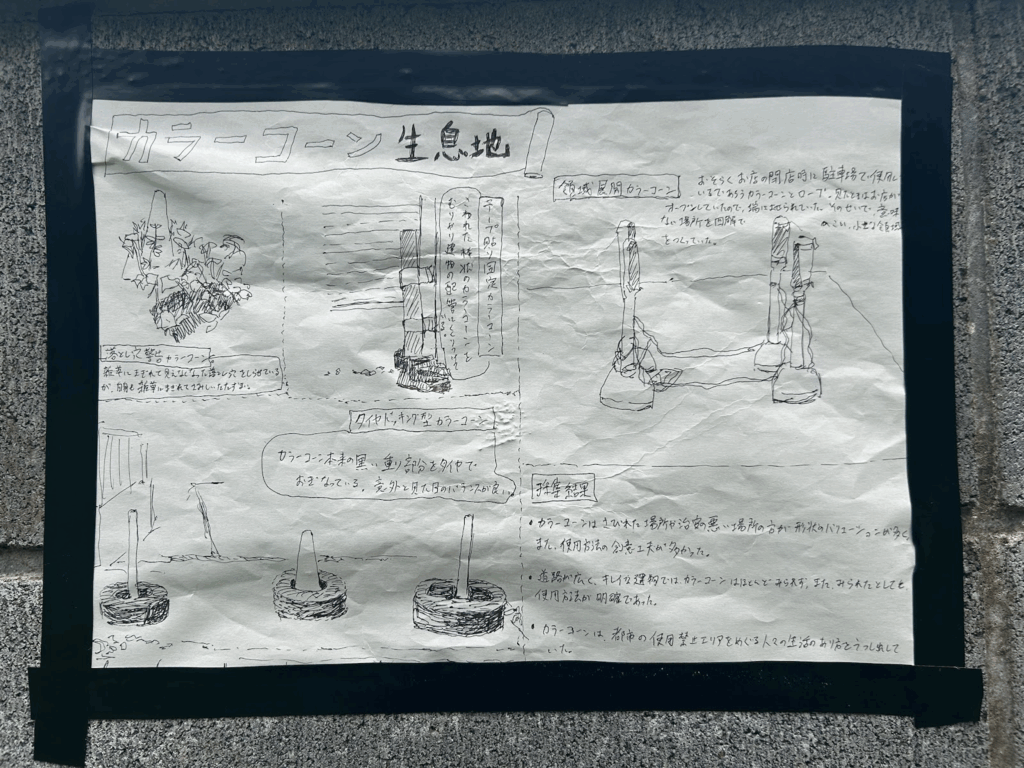 カラーコーン生息地
落とし穴警告カラーコーン
雑草にまぎれて見えなくなった落とし穴をしらせている
が、自身も雑草にまぎれてしまいただずむ。
テープ貼り固定カラーコーン
こわれた棒状のカラーコーンを
むりやり建物の配管にくくりつけ
領域展開カラーコーン
おそらくお店の閉店時に駐車場で使用して
いるであろうカラーコーンとロープ。見たときはお店が
オープンしていたので、端に寄られていた。そのせいで、意味
ない場所を囲んで
をつくっていた。
タイヤドッキング型カラーコーン
カラーコーン本来の黒い重り部分をタイヤで
おぎなっている。意外と見た目のバランスが良い。
採集結果
・カラーコーンはさびれた場所や治安の悪い場所の方が形状のバリエーションが多く、
また、使用方法の創意工夫が多かった。
・道路が広く、キレイな建物ではカラーコーンはほとんどみられず、また、みられたとしても
使用方法が明確であった。
・カラーコーンは、都市の使用禁止エリアをめぐる人々の生活のあり方をうつし出して
いた。